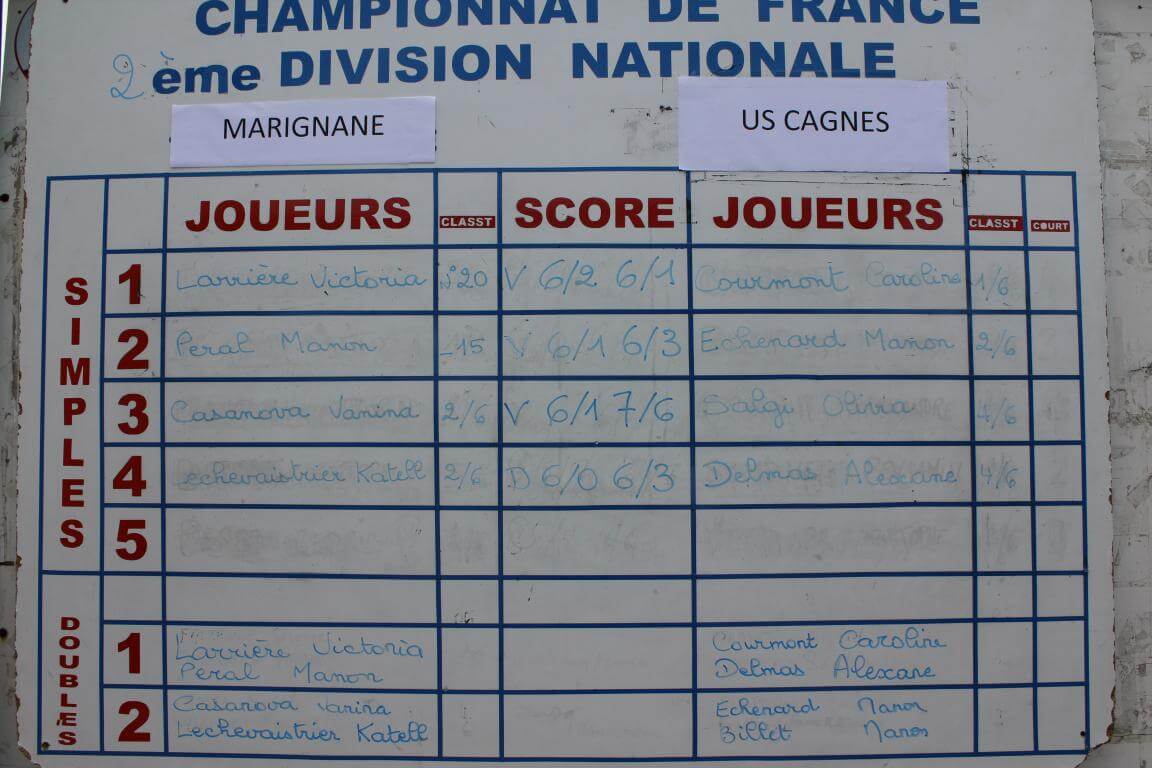 CHAMPIONNAT DE FRANCE
2ème DIVISION NATIONALE
MARIGNANE US CAGNES
JOUEURS CLASST SCORE JOUEURS CLASST COURT
SIMPLES
1 Larrière Victoria N°20 V 6/2 6/1 Courmont Caroline 1/6
2 Peral Manon -15 V 6/1 6/3 Echenard Manon 2/6
3 Casanova Vanina 2/6 V 6/1 7/6 Salgi Olivia 4/6
4 Lechevaistrier Katell 2/6 D 6/0 6/3 Delmas Alexane 4/6
5
DOUBLES
1 Larrière Victoria Courmont Caroline
Peral Manon Delmas Alexane
2 Casanova Vanina Echenard Manon
Lechevaistrier Katell Billet Manon